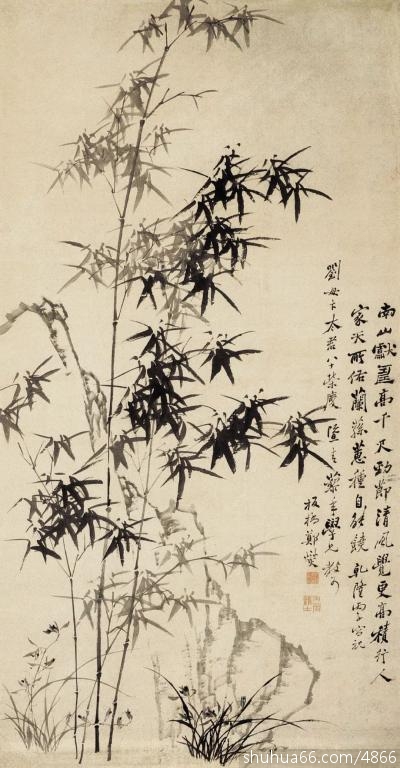 南山獻壽高千尺勁節清風覺更高積行人
家天所佑蘭蓀蕙種自能饒乾隆丙子
劉母卞太君八十榮慶
板橋鄭燮
shuhua66.com/4866